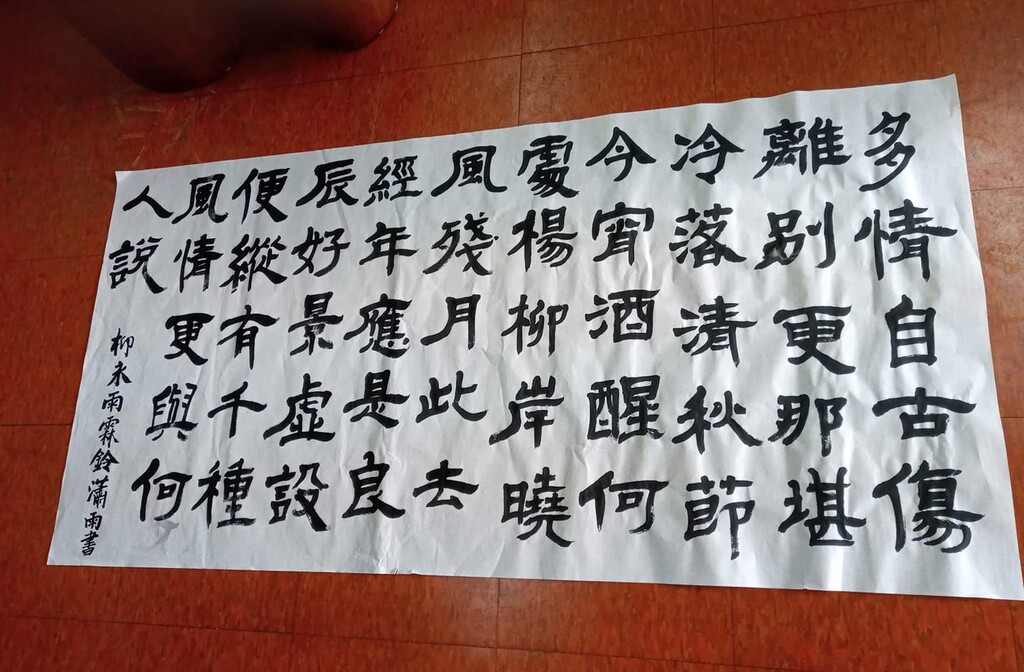 多情自古傷
離別更那堪
冷落清秋節
今宵酒醒何
處楊柳岸曉
風殘月此去
經年應是良
辰好景虛設
便縱有千種
風情更與何
人說
柳永雨霖鈴瀟雨書